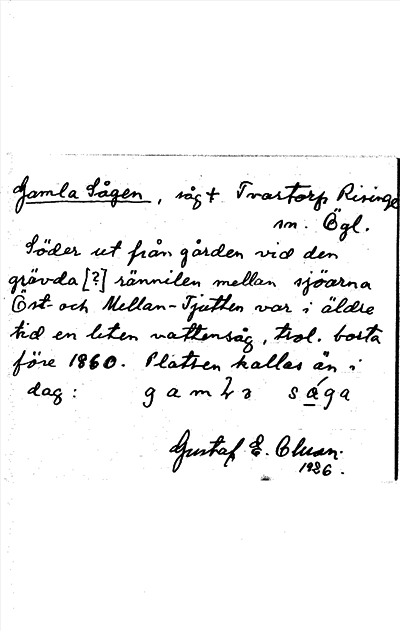 Gamla Sågen, såg † Tvartorp Risinge
sn. Ögl.
Söder ut från gården vid den
grävda [?] rännilen mellan sjöarna
Öst- och Mellan-Tjutten var i äldre
tid en liten vattensåg, trol. borta
före 1860. Platsen kallas än i
dag: gamła såga
Gustaf E. Cluson.
1926.